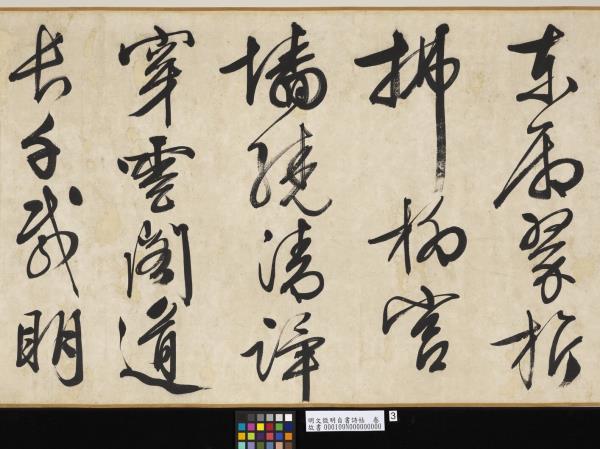 東廂翠旂
拂柳宮
墻繞清蹕
穿雲閣道
長千載明
明文徵明自書詩帖　卷
故書000109N000000000
3